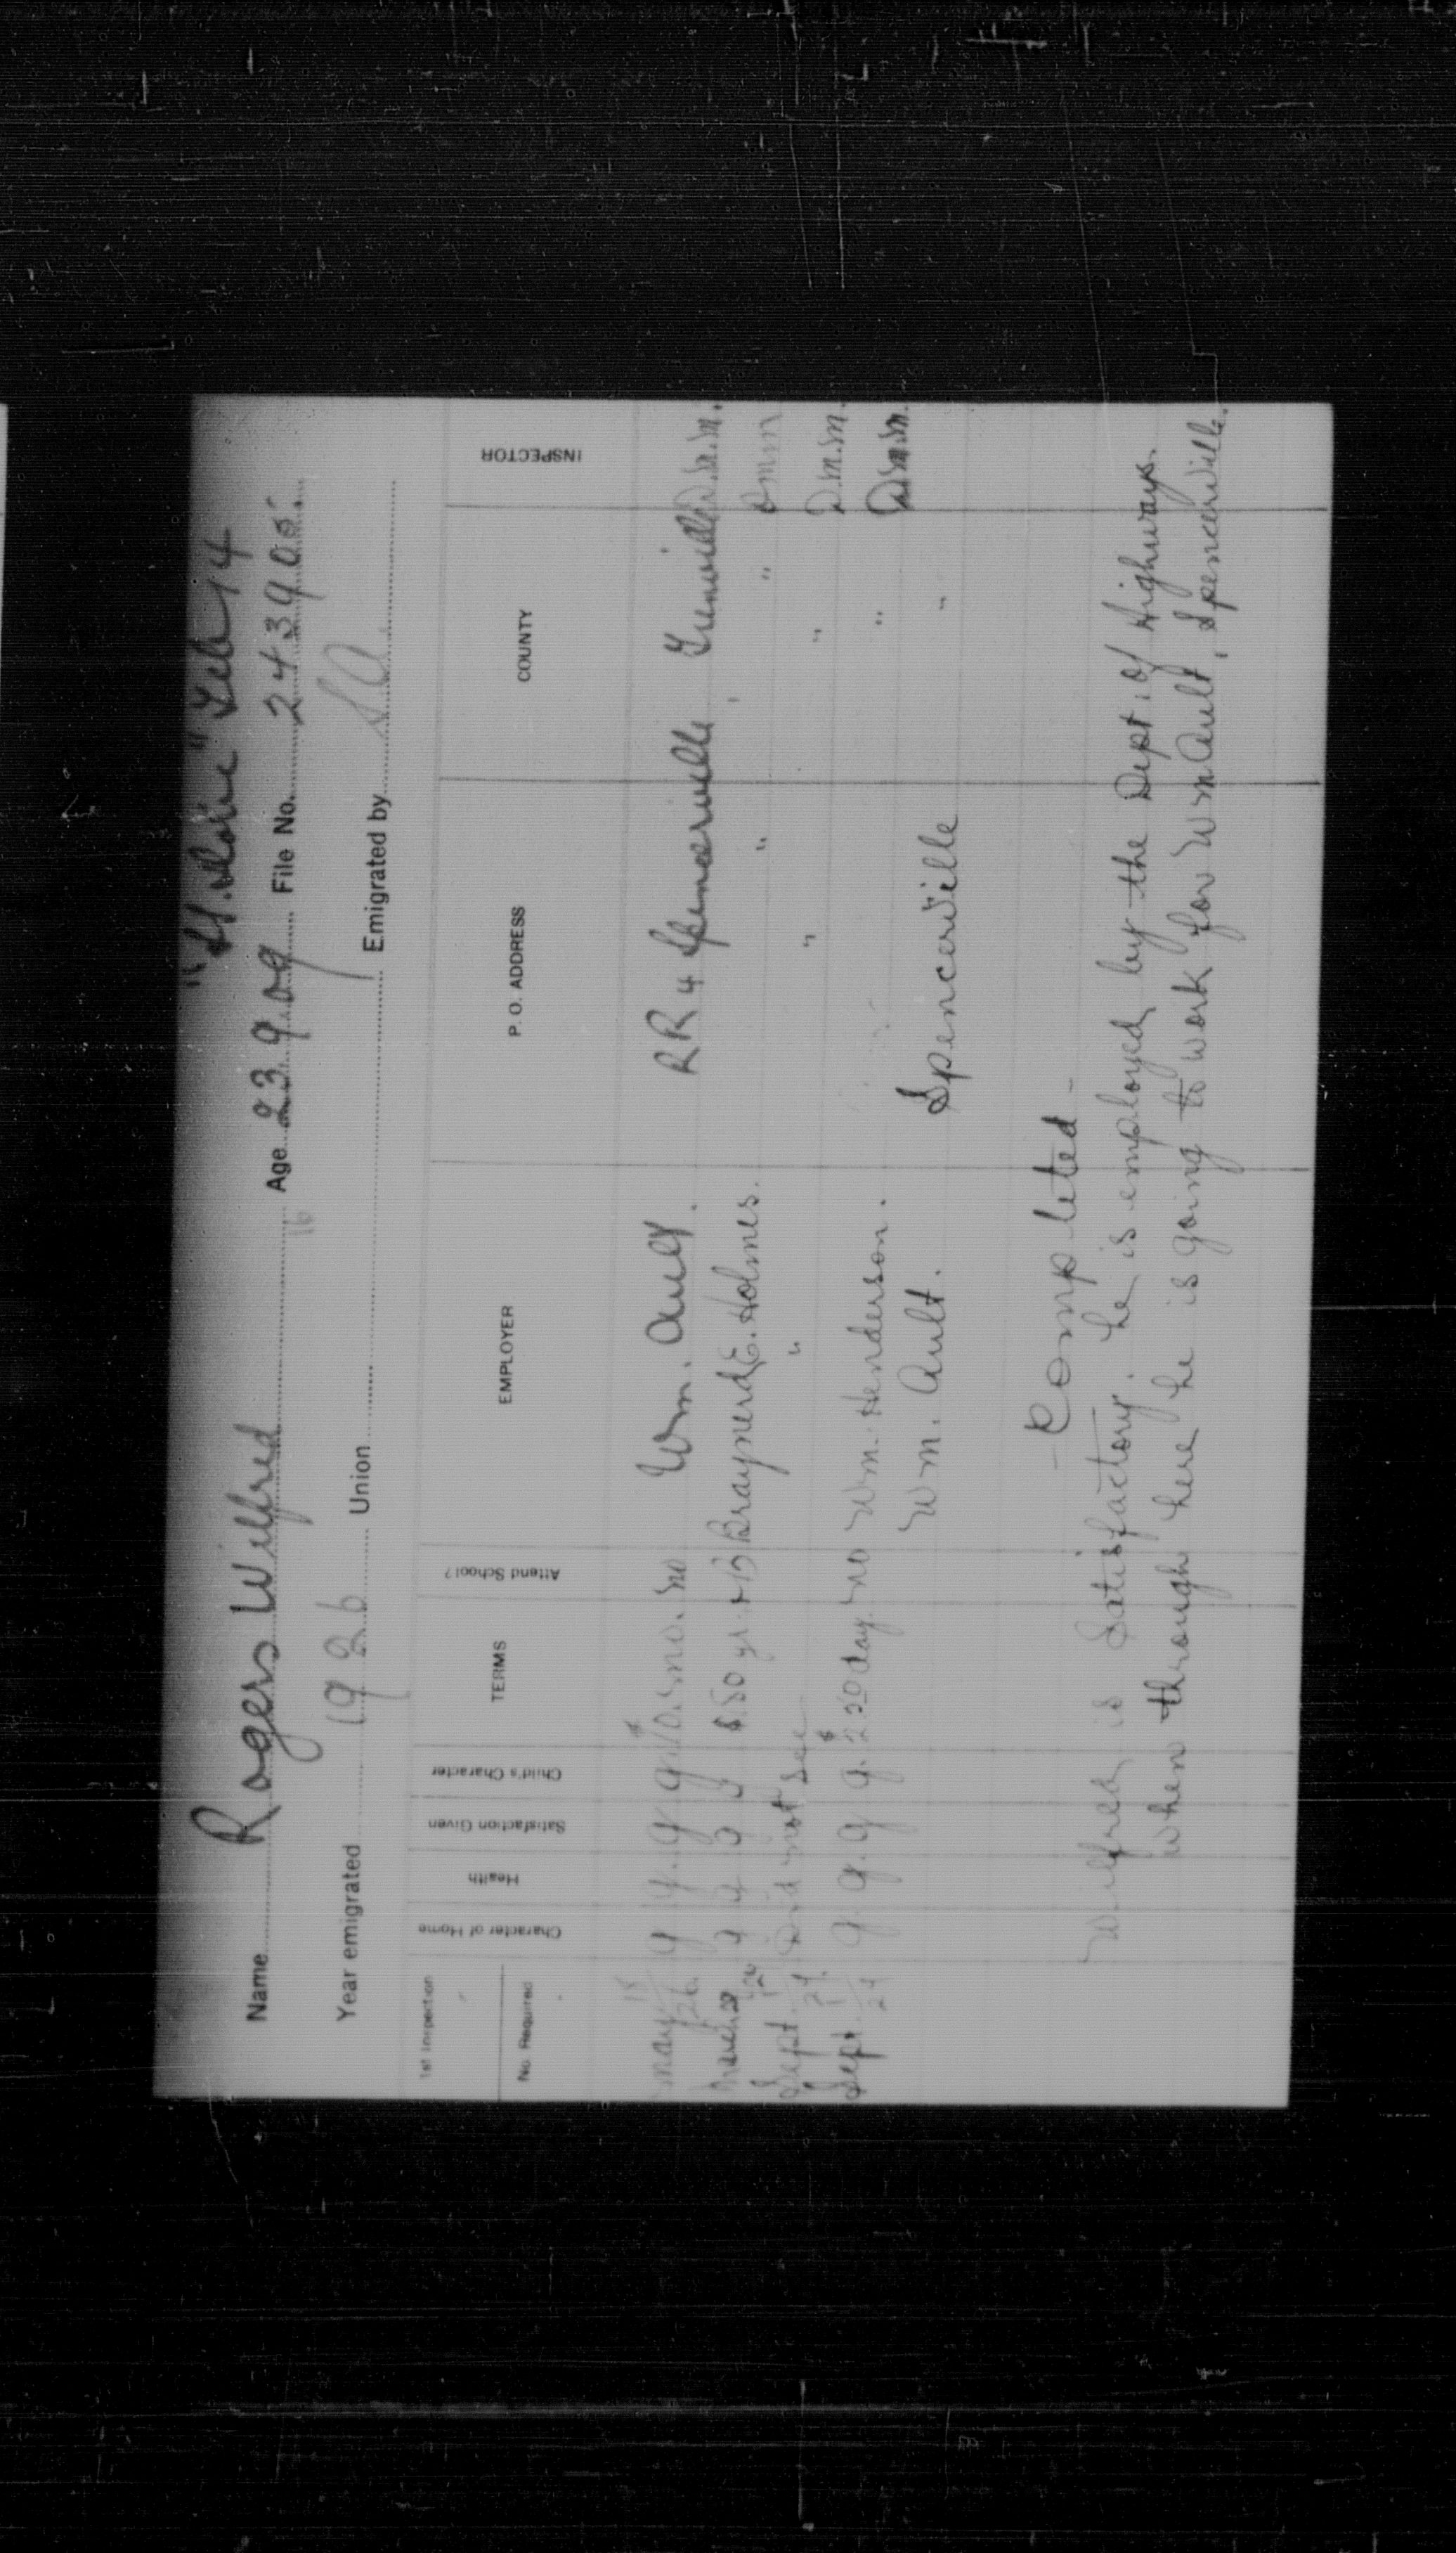 "St. Feb 14
Name Rogers Wilfred 16 Age 23.9.09 File No. 243905.
Year emigrated 1926 Union Emigrated by SA
1st Inspection
No. Required Character of Home Health Satisfaction Given Child's Character TERMS Attend School? EMPLOYER P. O. ADDRESS COUNTY INSPECTOR
May 18/26. g g. g g. $10. mo. no Wm. Ault. RR 4 Spencerville Grenville D.M.M.
March g g g g $.50 yr + B Braynerd E. Holmes. " " DMM
Sept. Did not see " " " D.M.M.
Sept. 27 g g. g g. $2.50 day. no Wm. Henderson. " D.M.M.
Wm. Ault. Spencerville "
- Completed -
Wilfred is Satisfactory. he is employed by the Dept. of Highways.
When through here he is going to work for Wm Ault, Spencerville.